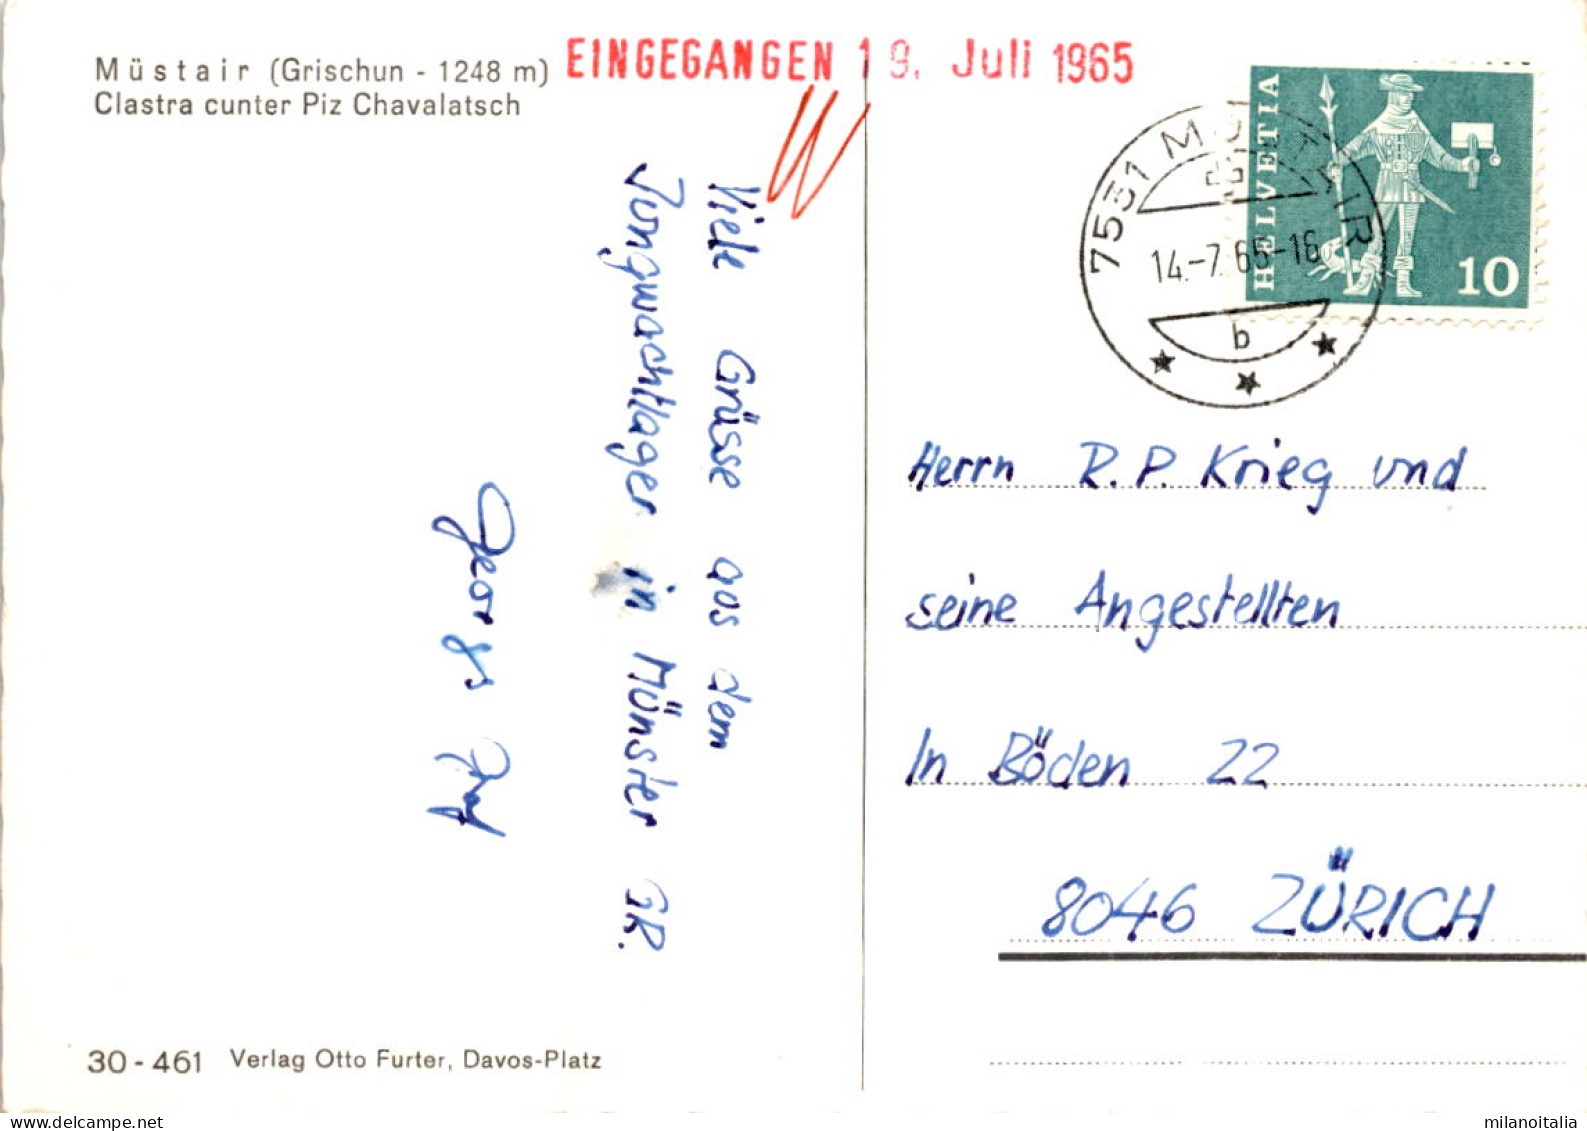 Müstair (Grischun - 1248 m)
Clastra cunter Piz Chavalatsch
EINGEGANGEN 19. Juli 1965
HELVETIA
10
7531 MÜSTAIR
14.-7.65-18
b
Viele Grüsse aus dem
Jungwachtlager in Münster GR.
Georges
Herrn R.P. Krieg und
seine Angestellten
In Böden 22
8046 ZÜRICH
30 - 461 Verlag Otto Furter, Davos-Platz
milanoitalia